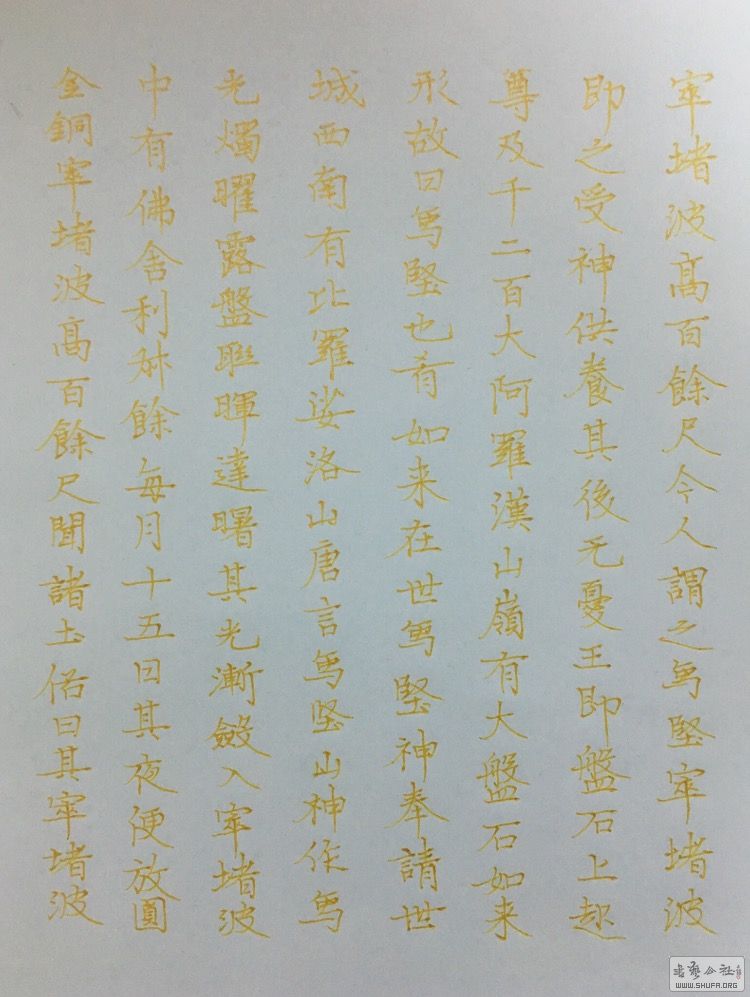 金銅窣堵波高百餘尺聞諸土俗曰其窣堵波
中有佛舍利升餘每月十五日其夜便放圓
光燭曜露盤聯暉達曙其光漸斂入窣堵波
城西南有比羅娑洛山唐言象堅山神作象
形故曰象堅也昔如来在世象堅神奉請世
尊及千二百大阿羅漢山嶺有大盤石如来
即之受神供養其後无憂王即盤石上起
窣堵波高百餘尺今人謂之象堅窣堵波
书艺公社
WWW.SHUFA.ORG